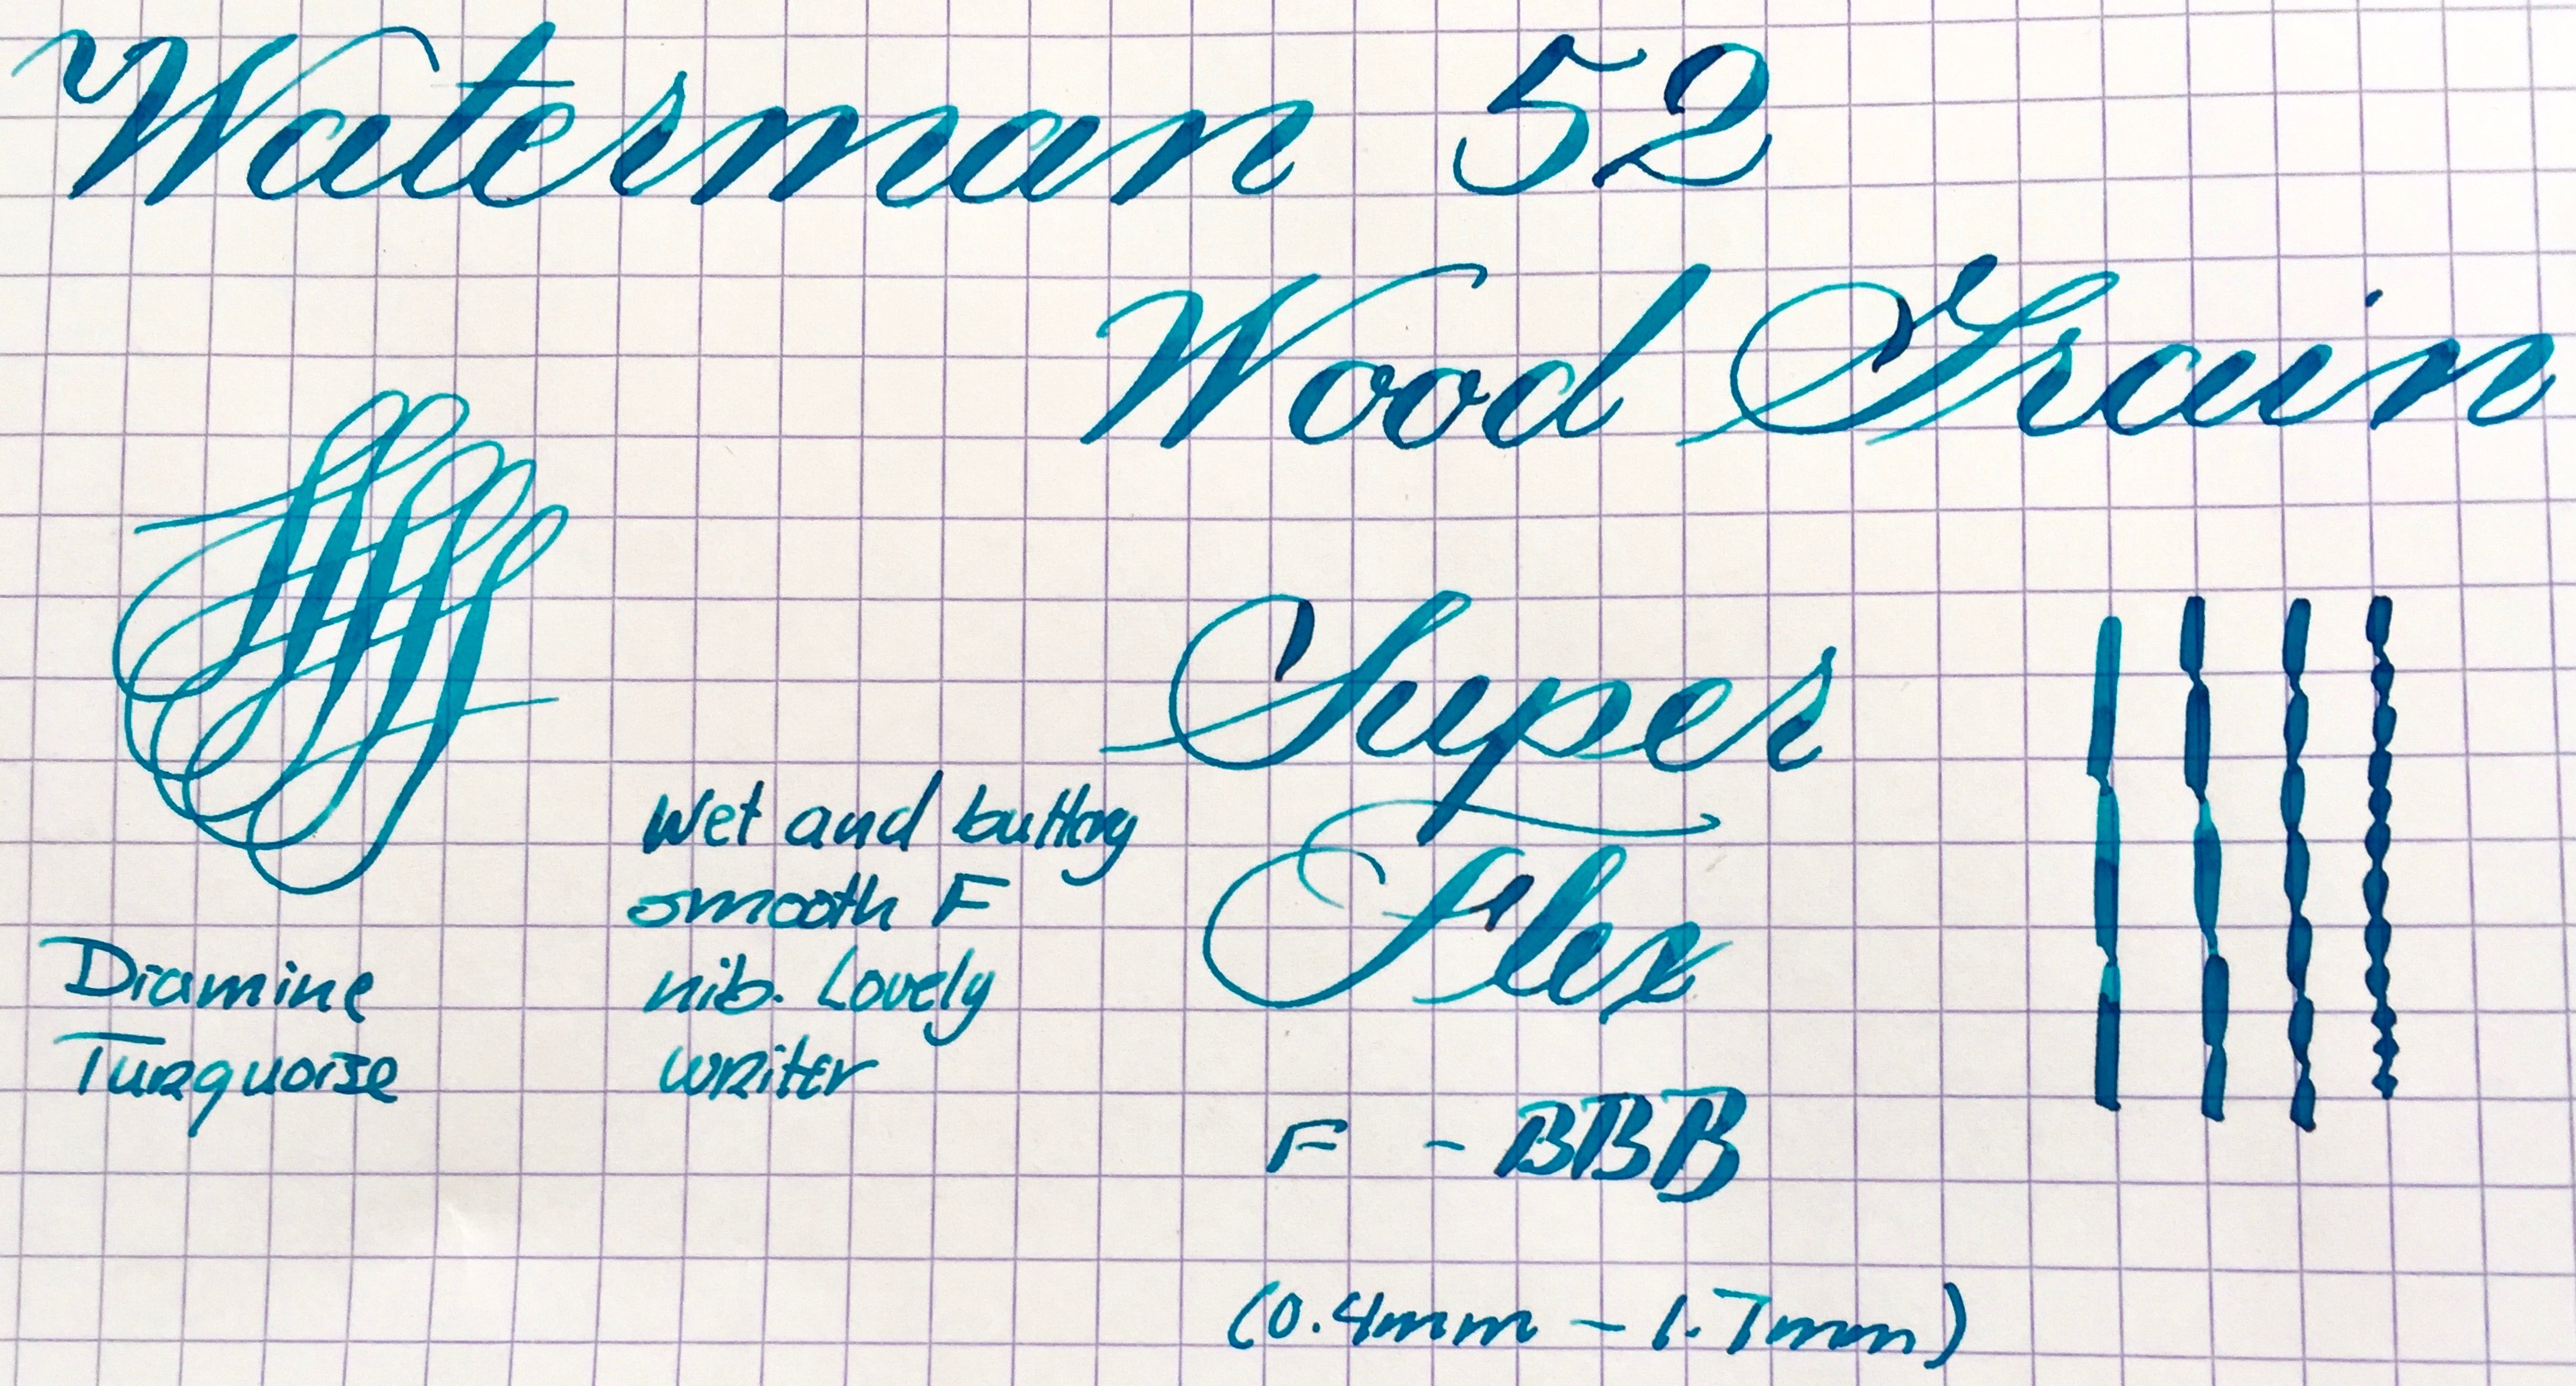 Waterman 52
Wood Grain
Super
Flex
F - BBB
(0.4mm - 1.7mm)
Wet and buttery
smooth F
nib. Lovely
writer
Diamine
Turquoise